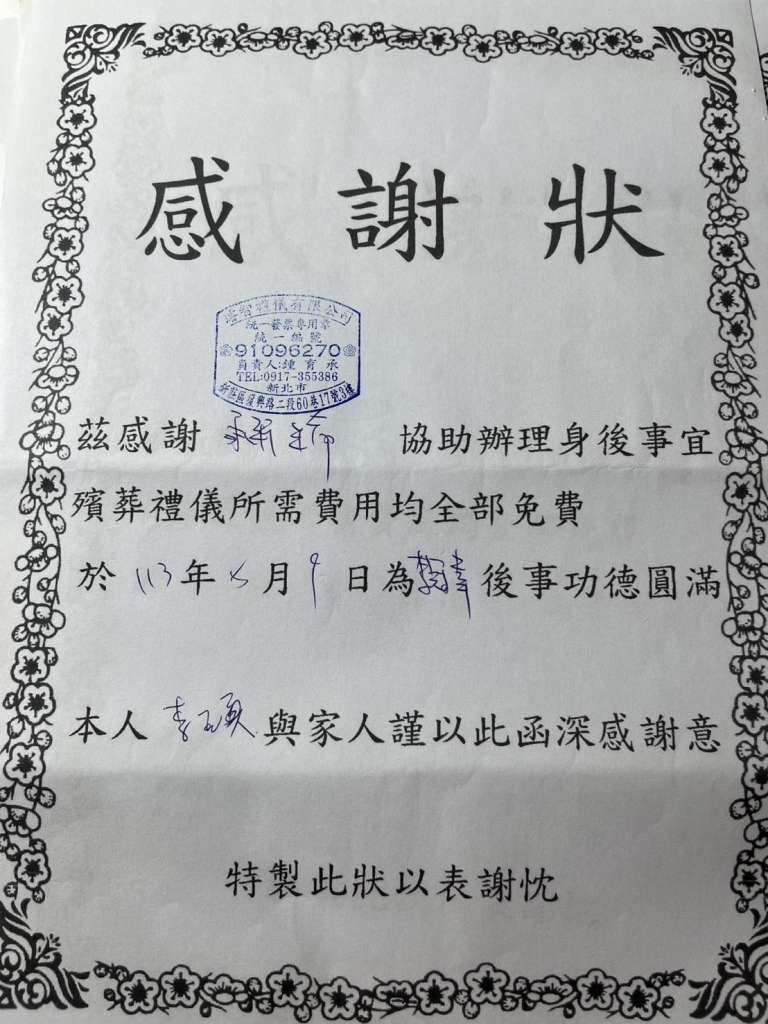 感謝狀
禮儀有限公司
統一發票專用章
統一編號
91096270
負責人:鍾育承
TEL:0917-355386
新北市
新莊區復興路二段60巷17號3樓
茲感謝 協助辦理身後事宜
殯葬禮儀所需費用均全部免費
於 113年 月 9 日為 後事功德圓滿
本人 李 與家人謹以此函深感謝意
特製此狀以表謝忱